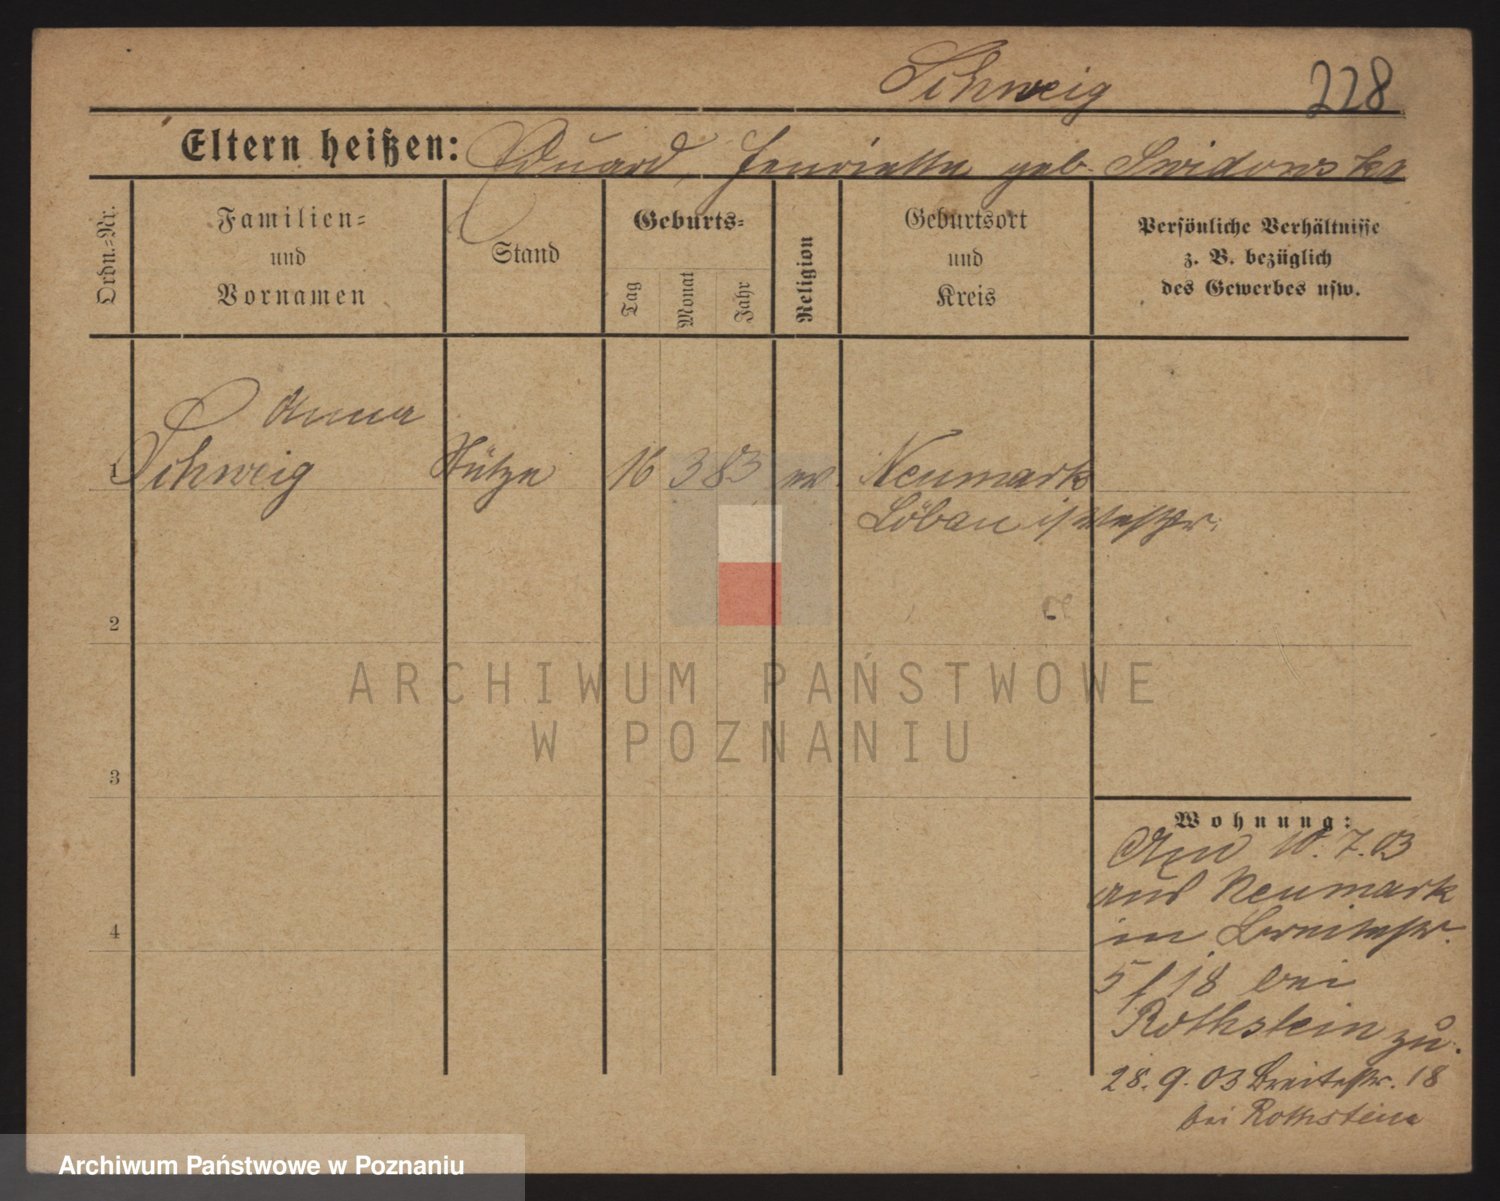 Schweig 228
Eltern heißen: Eduard, Henriette geb. Swidowska
Ordn.=Nr.
Familien=
und
Vornamen
Stand
Geburts=
Tag
Monat
Jahr
Religion
Geburtsort
und
Kreis
Persönliche Verhältnisse
z. B. bezüglich
des Gewerbes usw.
Anna
1 Schweig Stütze 16 3 83 Neumark
Löbau i/Westpr.
2
3
4
Wohnung:
10.7.03
aus Neumark
in Breitestr.
18 bei
Rothstein zu.
28.9.03 Breitestr. 18
bei Rothstein
ARCHIWUM PAŃSTWOWE
W POZNANIU
Archiwum Państwowe w Poznaniu